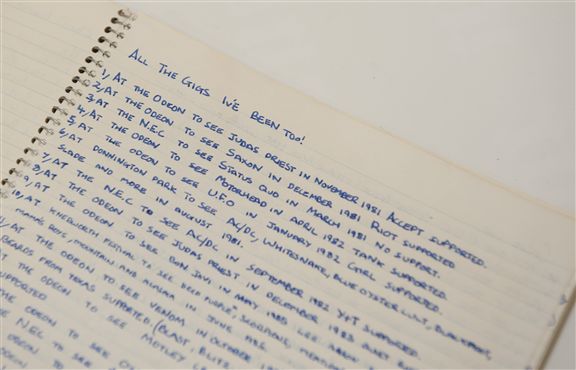 ALL THE GIGS I'VE BEEN TOO!
1, AT THE ODEON TO SEE JUDAS PRIEST IN NOVEMBER 1981 ACCEPT SUPPORTED.
2, AT THE ODEON TO SEE SAXON IN DECEMBER 1981 RIOT SUPPORTED
3, AT THE N.E.C TO SEE STATUS QUO IN MARCH 1981 NO SUPPORT.
4, AT THE ODEON TO SEE MOTORHEAD IN APRIL 1982 TANK SUPPORTED.
5, AT THE ODEON TO SEE U.F.O IN JANUARY 1982 GIRL SUPPORTED.
6, AT DONNINGTON PARK TO SEE AC/DC, WHITESNAKE, BLUE OYSTER CULT, BLACKFOOT,
SLADE AND MORE IN AUGUST 1981.
7, AT THE N.E.C TO SEE AC/DC IN SEPTEMBER 1982 Y&T SUPPORTED.
8, AT THE ODEON TO SEE JUDAS PRIEST IN DECEMBER 1983 QUIET
9, AT THE ODEON TO SEE BON JOVI IN MAY 1985 LEE AARON
10, AT KNEBWORTH FESTIVAL TO SEE DEEP PURPLE, SCORPIONS,
MAMA'S BOYS, MOUNTAIN AND ALASKA IN JUNE 1985.
AT THE ODEON TO SEE VENOM IN OCTOBER
BEARDS FROM TEXAS SUPPORTED. (BLAST, BLITZ
AT THE ODEON TO SEE MOTLEY
SUPPORTED
THE ODEON TO SEE
N.E.C TO SEE
ODEON TO